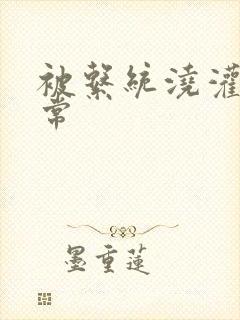 被繫統澆灌
常
墨重蓮